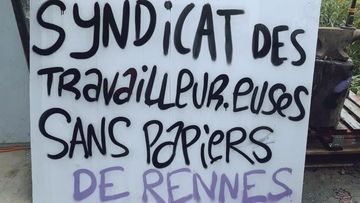 SYNDICAT DES
TRAVAILLEUR.EUSES
SANS PAPIERS
DE RENNES